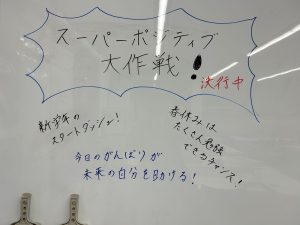 スーパーポジティブ
大作戦!
決行中
新学年の
スタートダッシュ!
春休みは
たくさん勉強
できるチャンス!
今日のがんばりが
未来の自分を助ける!